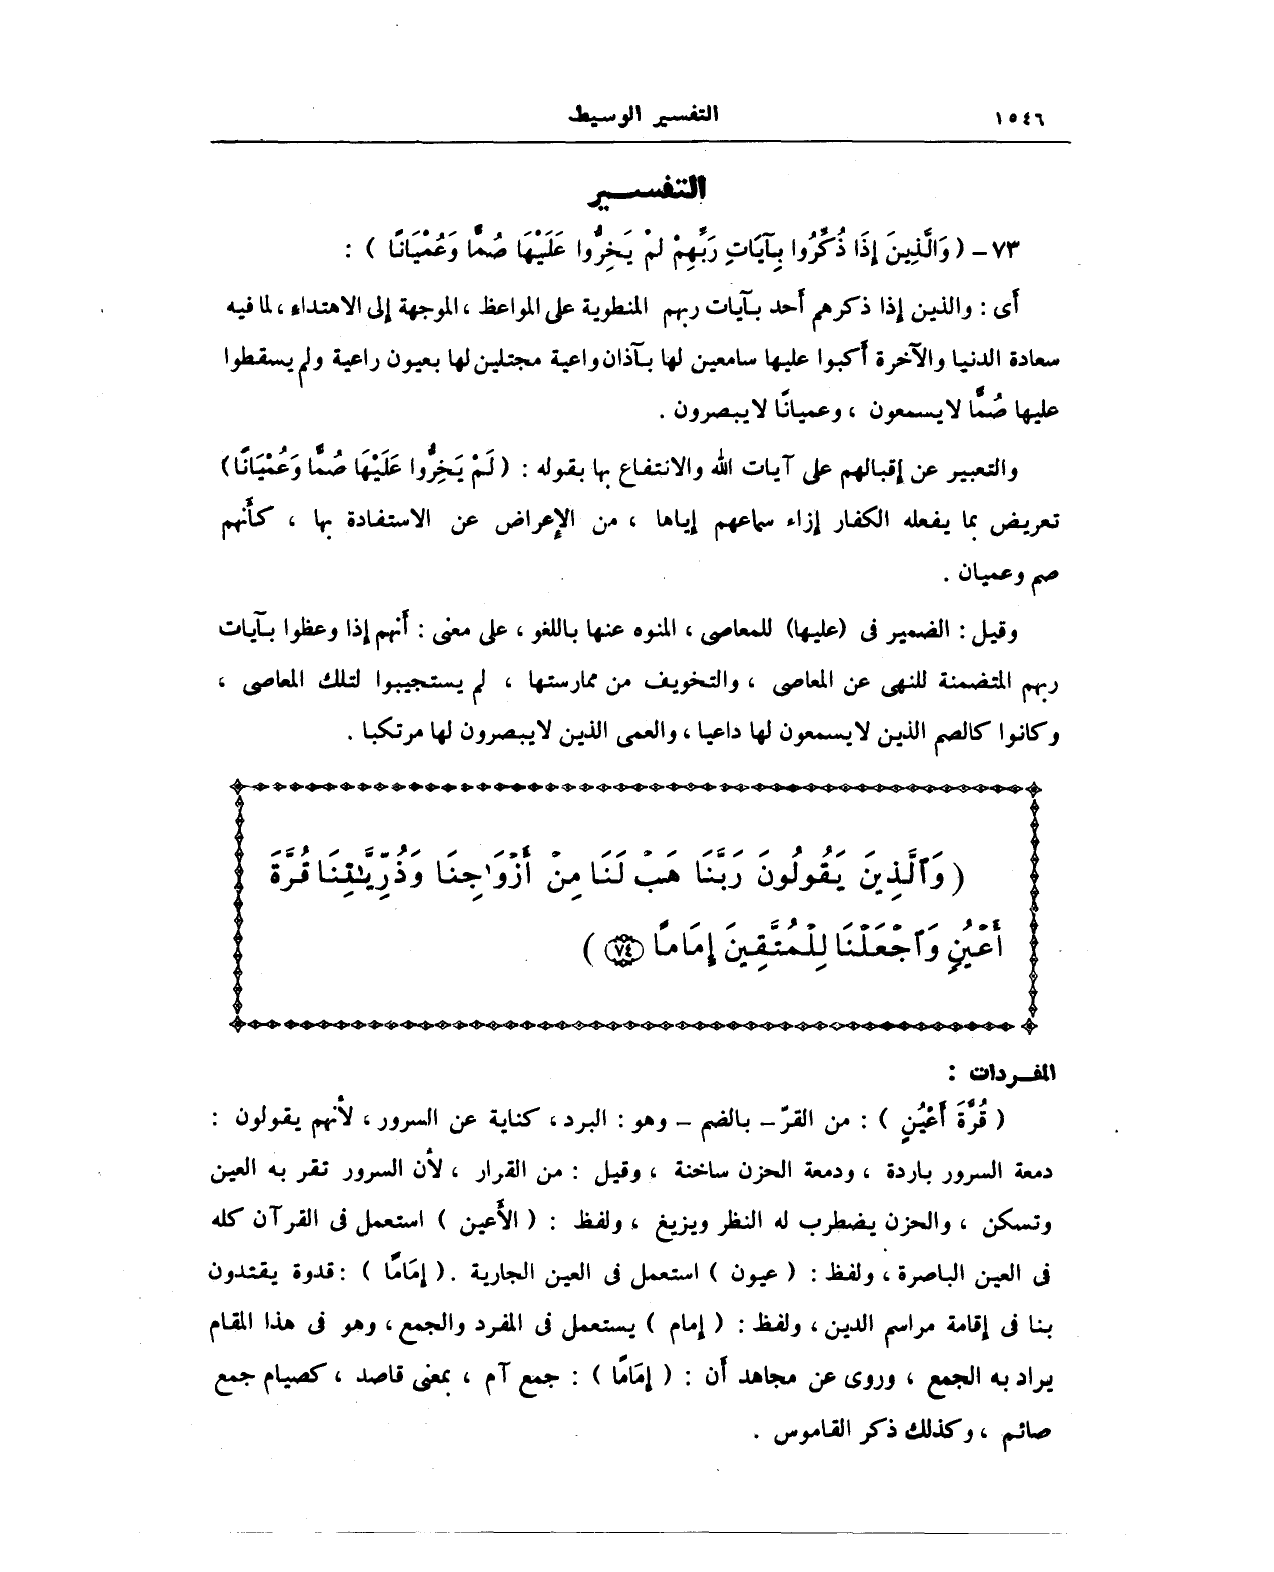 ١٥٤٦
التفسير الوسيط
التفسير
٧٣ – ( وَالَّذِينَ إِذَا ذُكِّرُوا بِآيَاتِ رَبِّهِمْ لَمْ يَخِرُّوا عَلَيْهَا صُمًّا وَعُمْيَانًا ) :
أى : والذين إذا ذكرهم أحد بآيات ربهم المنطوية على المواعظ ، الموجهة إلى الاهتداء ، لما فيه
سعادة الدنيا والآخرة أكبوا عليها سامعين لها بآذان واعية مجتلين لها بعيون راعية ولم يسقطوا
عليها صُمًّا لا يسمعون ، وعميانًا لا يبصرون .
والتعبير عن إقبالهم على آيات الله والانتفاع بها بقوله : ( لَمْ يَخِرُّوا عَلَيْهَا صُمًّا وَعُمْيَانًا )
تعريض بما يفعله الكفار إزاء سماعهم إياها ، من الإعراض عن الاستفادة بها ، كأنهم
صم وعميان .
وقيل : الضمير فى (عليها) للمعاصى ، المنوه عنها باللغو ، على معنى : أنهم إذا وعظوا بآيات
ربهم المتضمنة للنهى عن المعاصى ، والتخويف من ممارستها ، لم يستجيبوا لتلك المعاصى ،
وكانوا كالصم الذين لا يسمعون لها داعيا ، والعمى الذين لا يبصرون لها مرتكبا .
( وَٱلَّذِينَ يَقُولُونَ رَبَّنَا هَبْ لَنَا مِنْ أَزْوَٰجِنَا وَذُرِّيَّٰتِنَا قُرَّةَ
أَعْيُنٍ وَٱجْعَلْنَا لِلْمُتَّقِينَ إِمَامًا ﴿٧٤﴾ )
المفردات :
( قُرَّةَ أَعْيُنٍ ) : من القرّ – بالضم – وهو : البرد ، كناية عن السرور ، لأنهم يقولون :
دمعة السرور باردة ، ودمعة الحزن ساخنة ، وقيل : من القرار ، لأن السرور تقر به العين
وتسكن ، والحزن يضطرب له النظر ويزيغ ، ولفظ : ( الأعين ) استعمل فى القرآن كله
فى العين الباصرة ، ولفظ : ( عيون ) استعمل فى العين الجارية . ( إِمَامًا ) : قدوة يقتدون
بنا فى إقامة مراسم الدين ، ولفظ : ( إمام ) يستعمل فى المفرد والجمع ، وهو فى هذا المقام
يراد به الجمع ، وروى عن مجاهد أن : ( إِمَامًا ) : جمع آم ، بمعنى قاصد ، كصيام جمع
صائم ، وكذلك ذكر القاموس .